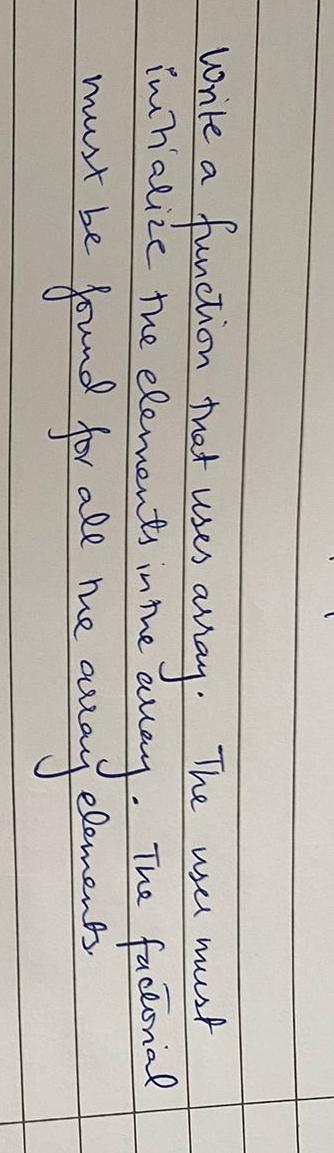 Write a function that uses array. The user must
initialize the elements in the array. The factorial
must be found for all the array elements.